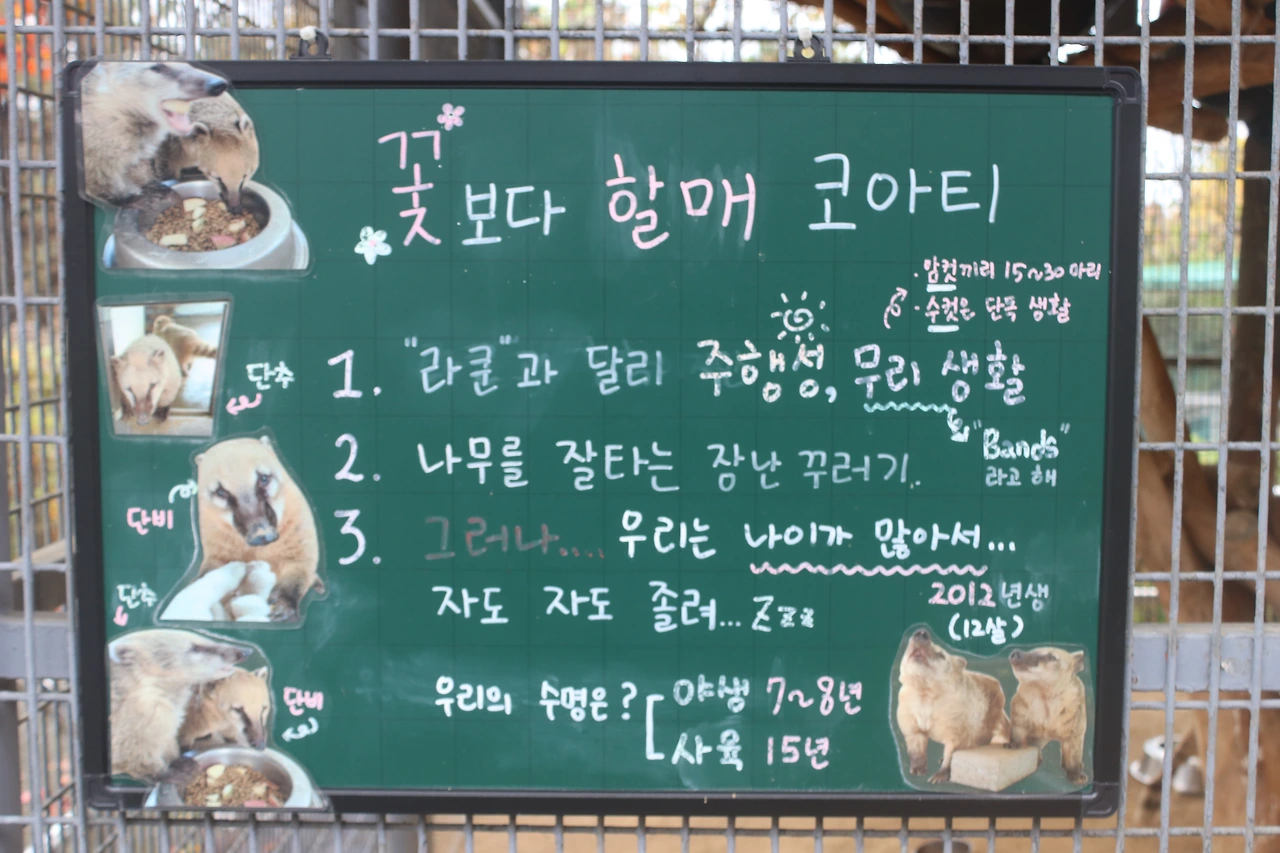 꽃보다 할매 코아티
· 암컷끼리 15~30마리
· 수컷은 단독 생활
1. "라쿤"과 달리 주행성, 무리 생활
"Bands"
라고 해
2. 나무를 잘타는 장난꾸러기.
3. 그러나.... 우리는 나이가 많아서...
자도 자도 졸려... Zzz
2012년생
(12살)
우리의 수명은? 야생 7~8년
사육 15년
단추
단비
단추
단비